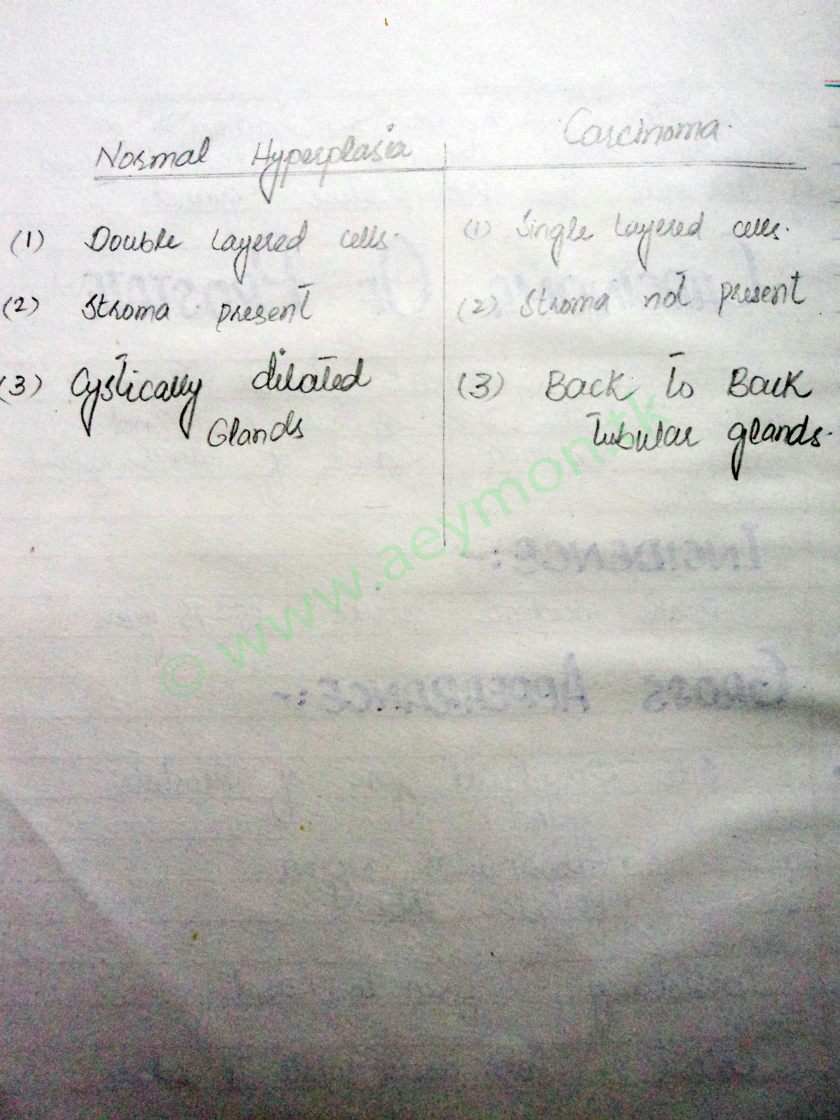 Normal Hyperplasia
Carcinoma.
(1) Double Layered cells.
(1) Single Layered cells.
(2) Stroma present
(2) Stroma not present
(3) Cystically dilated
Glands
(3) Back to Back
tubular glands.
© www.aeymon.tk
INCIDENCE:-
GROSS APPEARANCE:-